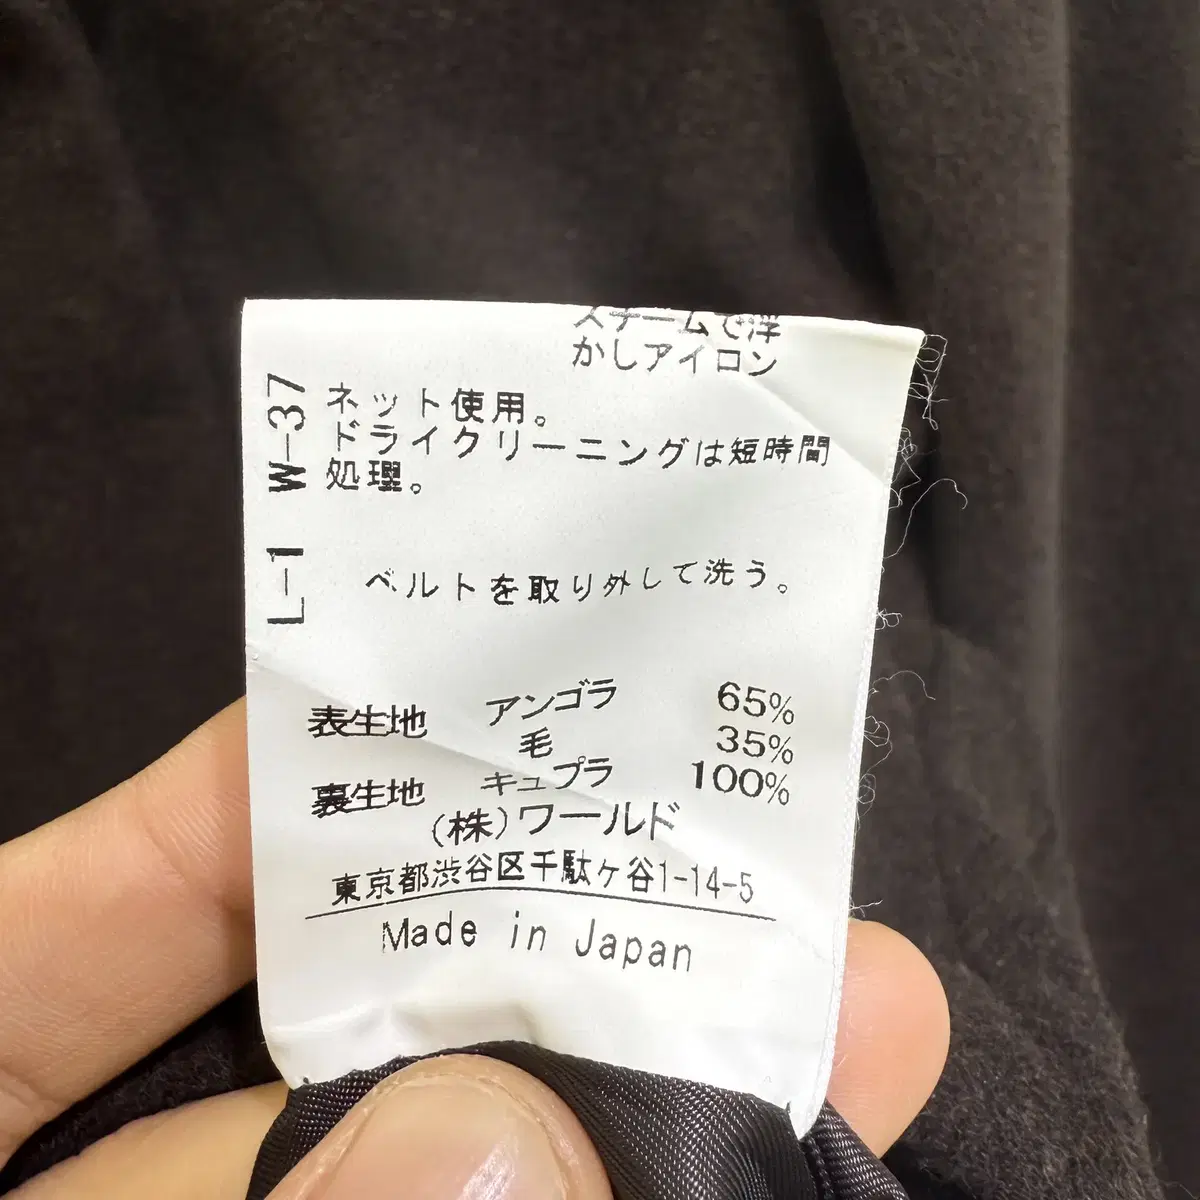 スチームで浮
かしアイロン
ネット使用。
ドライクリーニングは短時間
処理。
L-1 W-37
ベルトを取り外して洗う。
表生地 アンゴラ 65%
毛 35%
裏生地 キュプラ 100%
(株)ワールド
東京都渋谷区千駄ヶ谷1-14-5
Made in Japan